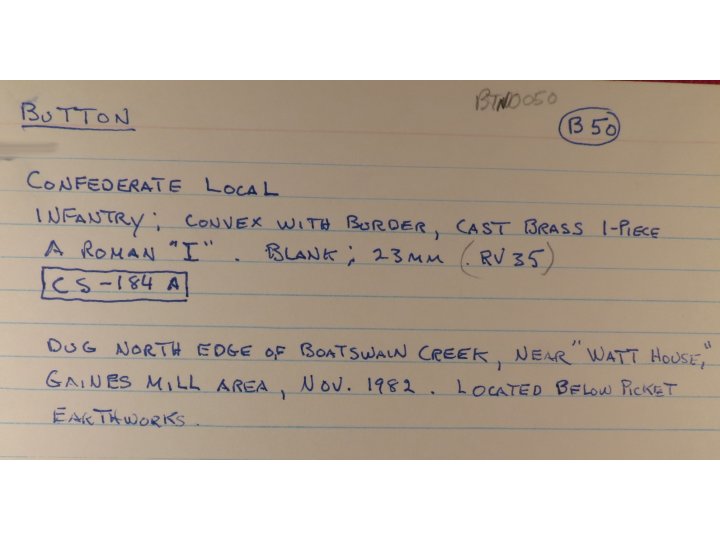 BTN0050
BUTTON
B50
CONFEDERATE LOCAL
INFANTRY; CONVEX WITH BORDER, CAST BRASS 1-PIECE
A ROMAN "I". BLANK; 23MM (RV35)
CS-184 A
DUG NORTH EDGE OF BOATSWAIN CREEK, NEAR "WATT HOUSE,"
GAINES MILL AREA, NOV. 1982. LOCATED BELOW PICKET
EARTHWORKS.